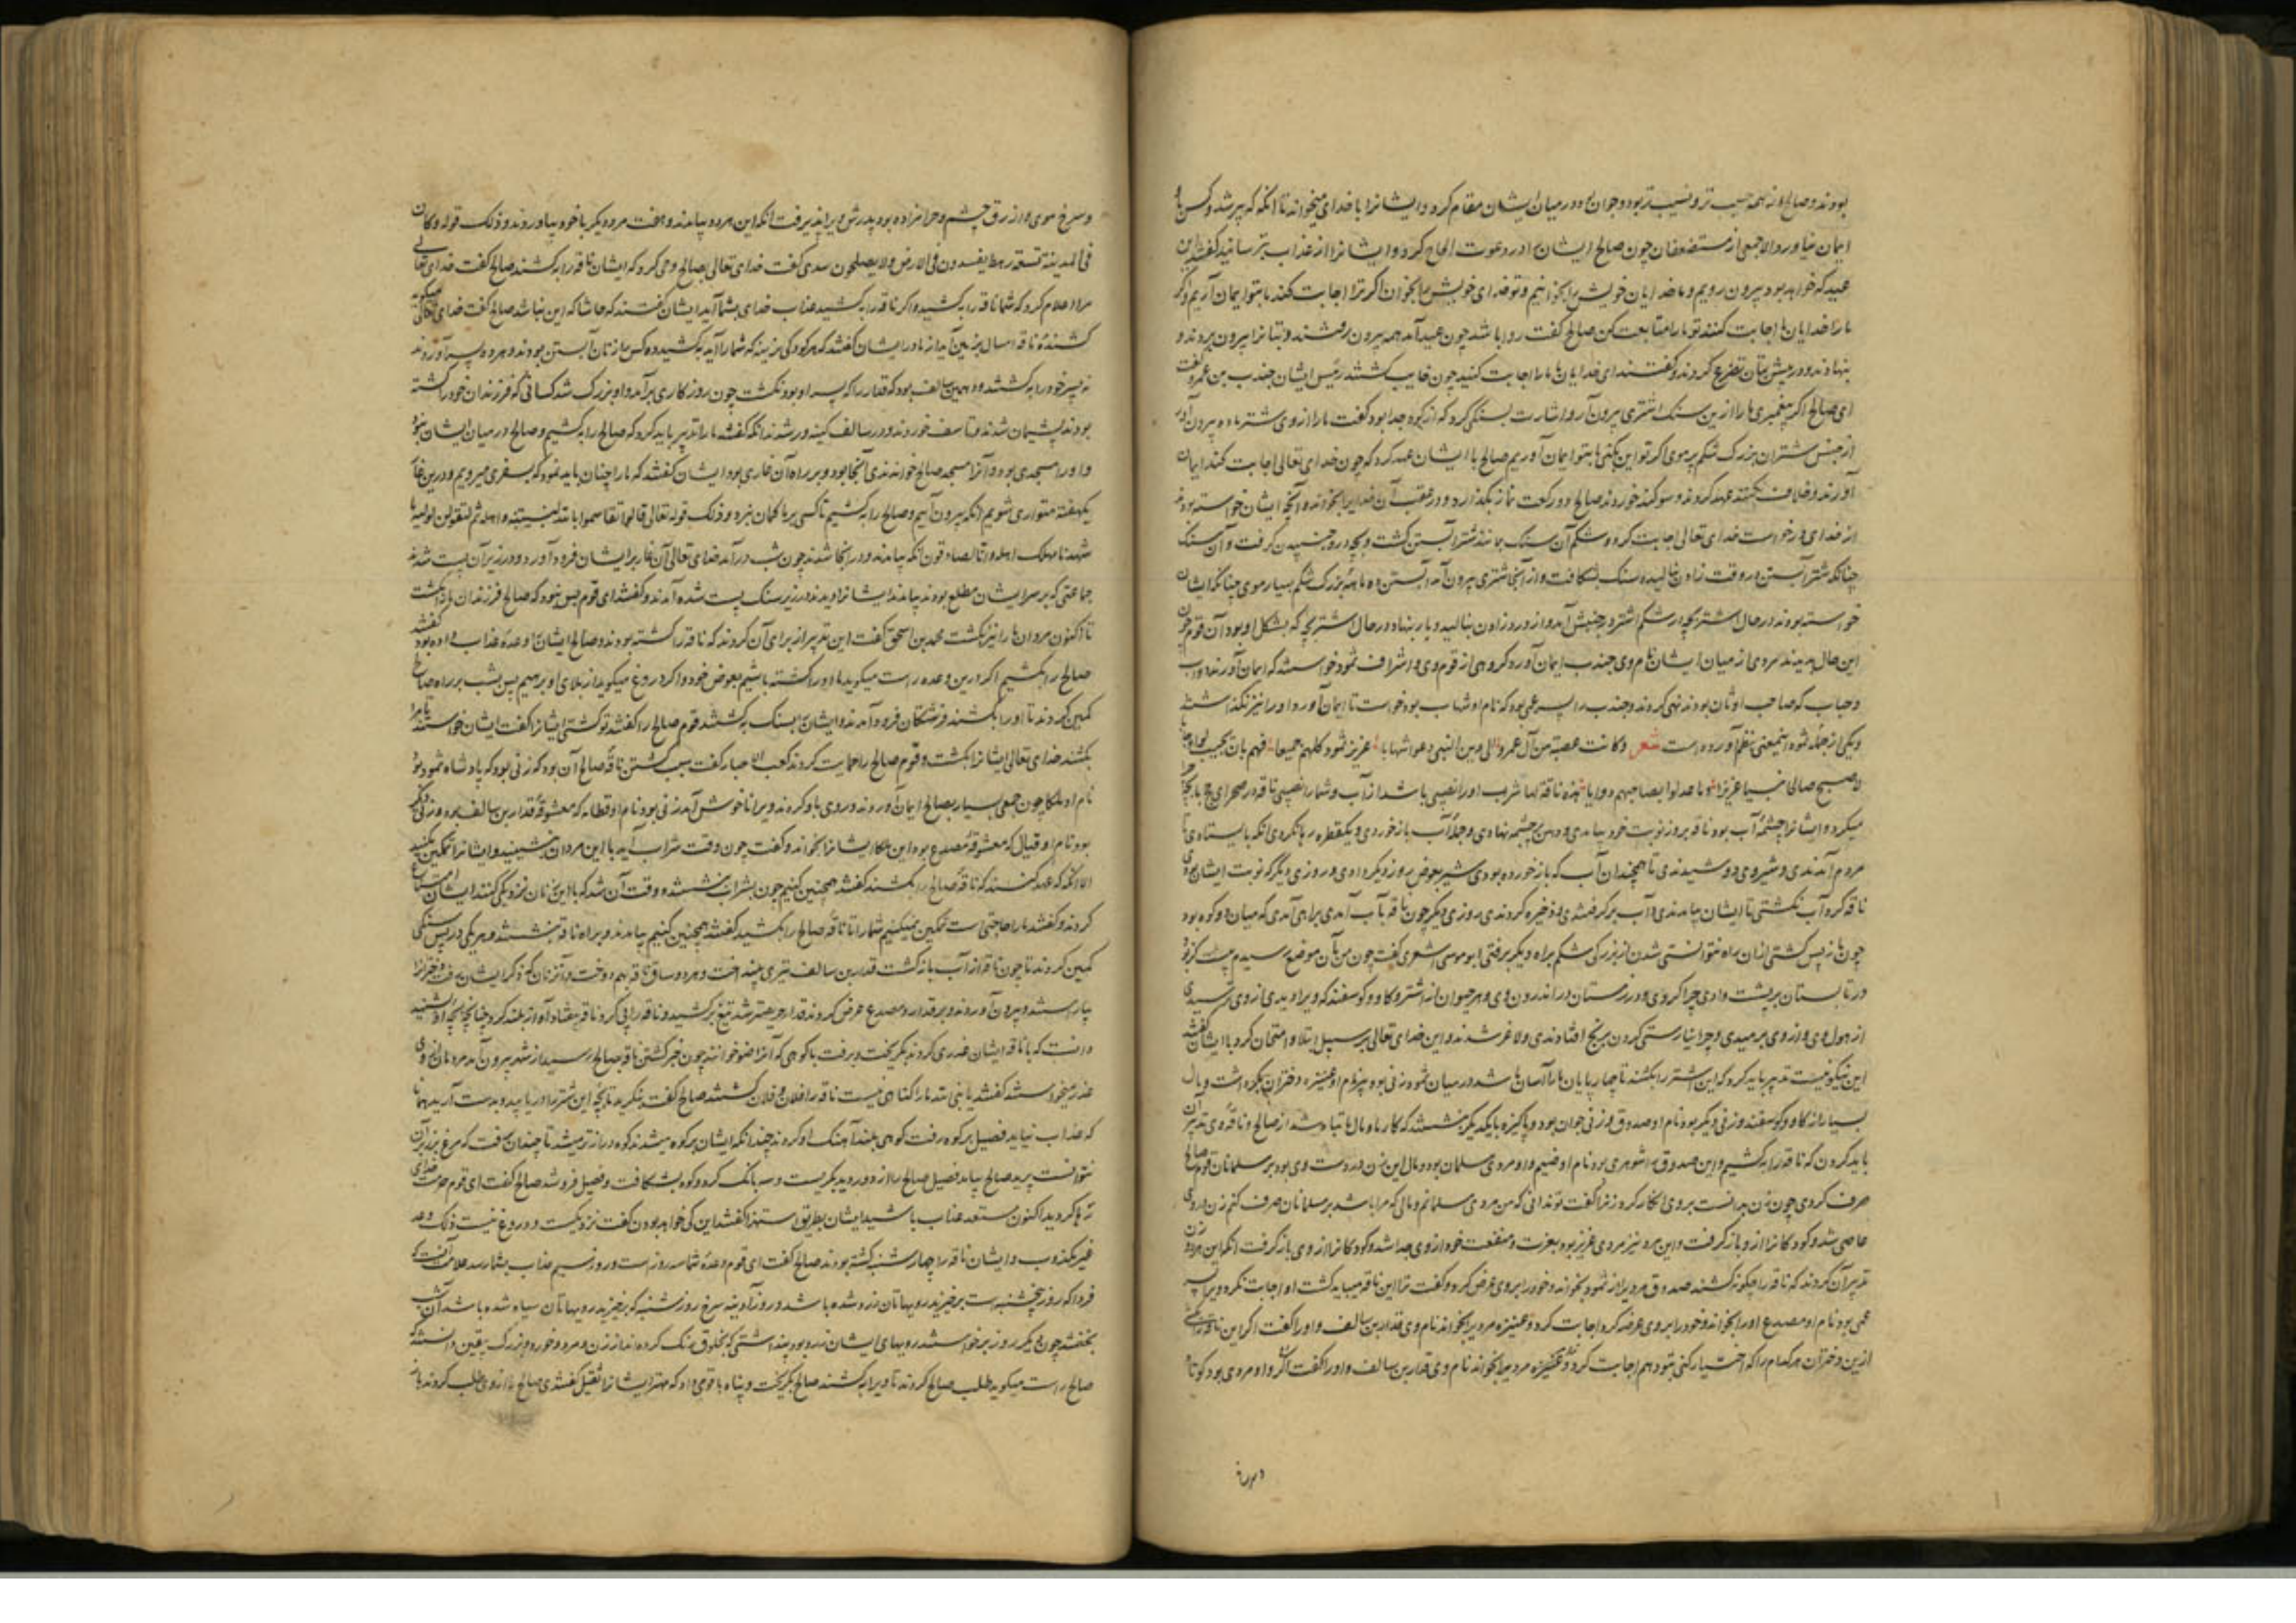 بودند و صالح از همه حسیب تر و نسیب تر بود و جوان بود در میان ایشان مقام کرد و ایشانرا با خدای میخواند تا آنکه که پیر شد و کس باو
ایمان نیاورد الا جمعی از مستضعفان چون صالح ایشانرا در دعوت الحاح کرد و ایشانرا از عذاب بترسانید گفتند این
عید که خواهد بود بیرون رویم و ما خدایان خویش را بخوانیم و تو خدای خویش را بخوان اگر ترا اجابت کند ما بتو ایمان آریم و اگر
ما را خدایان ما اجابت کنند تو ما را متابعت کن صالح گفت روا باشد چون عید آمد همه بیرون رفتند و بتانرا بیرون بردند و
بنهادند و در پیش بتان تضرع کردند و گفتند ای خدایان ما ما را اجابت کنید چون خایب گشتند رئیس ایشان جندب بن عمرو گفت
ای صالح اگر پیغمبری ما را ازین سنگ اشتری بیرون آر و اشارت بسنگی کرد که از کوه جدا بود گفت ما را ازوی شتر ماده بیرون آور
از جنس شتران بزرگ شکم پر موی اگر تو این بکنی ما بتو ایمان آوریم صالح با ایشان عهد کرد که چون خدای تعالی اجابت کند ایمان
آورند و خلاف نکنند عهد کردند و سوگند خوردند صالح دو رکعت نماز بگذارد و در عقب آن خدایرا بخواند و آنچه ایشان خواسته بودند
از خدای درخواست خدای تعالی اجابت کرد و شکم آن سنگ مانند شتر آبستن گشت و بچه درو جنبیدن گرفت و آن سنگ
چنانکه شتر آبستن در وقت زادن نالید و سنگ بشکافت و از آنجا شتری بیرون آمد آبستن ده ماهه بزرگ شکم بسیار موی چنانکه ایشان
خواسته بودند در حال اشتر بچه در شکم اشتر در جنبش آمد و از درد زادن بنالید و بار بنهاد در حال اشتر بچه که بشکل او بود آن قوم چون
این حال بدیدند مردی از میان ایشان نام وی جندب ایمان آورد و گروهی از قوم وی و اشراف ثمود خواستند که ایمان آورند ذواب
و حباب که صاحب اوثان بودند نهی کردند و جندب را پسر عمی بود که نام او شهاب بود خواست تا ایمان آورد او را نیز نگذاشتند
و یکی از جمله ثمود اینمعنی بنظم آورده است شعر و کانت عصبة من آل عمرو الی دین النبی دعوا شهابا عزیز ثمود کلهم جمیعا فهم بان یجیب ولو اجابا
لاصبح صالح فینا عزیزا و ما عدلوا بصاحبهم ذوابا هذه ناقة لها شرب او را نصیبی باشد از آب و شما را نصیبی ناقه در صحرای با بچه چرا
میکرد و ایشانرا چشمه آب بود ناقه بروز نوبت خود بیامدی و دهن بر چشمه نهادی و جمله آب باز خوردی و یکقطره رها نکردی آنکه بایستادی تا
مردم آمدندی و شیر وی دوشیدندی تا همچندان آب که باز خورده بودی شیر بعوض بروز دیگر دادی و روزی دیگر که نوبت ایشان بودی
ناقه گرد آب نگشتی تا ایشان بیامدندی و آب برگرفتندی و ذخیره کردندی روزی دیگر چون ناقه بآب آمدی براهی آمدی که میان دو کوه بود
چون باز پس گشتی ازان راه نتوانستی شدن از بزرگی شکم براه دیگر برفتی ابو موسی اشعری گفت چون من بآن موضع رسیدم
در تابستان بر پشت وادی چرا کردی و در زمستان در اندرون وی و هر حیوان از اشتر و گاو و گوسفند که ویرا دیدی ازوی ترسیدی
از هول وی و ازوی برمیدی و چرا نیارستی کردن برنج افتادندی و لاغر شدند و این خدای تعالی بر سبیل ابتلا و امتحان کرد با ایشان گفتند
این نیکو نیست تدبیر باید کرد که این اشتر را بکشند تا چهارپایان ما را آسان باشد در میان ثمود زنی بود پیر نام او عنیزه دختران نیکو داشت و مال
بسیار از گاو و گوسفند و زنی دیگر بود نام او صدوق و زنی جوان بود و پاکیزه بایکدیگر بنشستند که کار ما و مال ما تباه شد از صالح و ناقه وی تدبیر آن
باید کردن که ناقه را بکشیم و این صدوق را شوهری بود نام او ضیم و او مردی مسلمان بود و مال این زن در دست وی بود بر مسلمانان قوم صالح
صرف کردی چون زن بدانست بر وی انکار کرد زنرا گفت تو ندانی که من مردی مسلمانم و مالی که مرا باشد بر مسلمانان صرف کنم زن در وی
عاصی شد و کودکانرا ازو باز گرفت و این مرد نیز مردی عزیز بود بعزت و منفعت خود ازوی جدا شد و کودکانرا ازوی باز گرفت آنکه این هردو زن
تدبیر آن کردند که ناقه را چگونه کشند صدوق مردیرا از ثمود بخواند و خود را بر وی عرض کرد و گفت ترا این ناقه میباید کشت او اجابت نکرد ویرا پسر
عمی بود نام او مصدع او را بخواند و خود را بر وی عرضه کرد اجابت کرد و عنیزه مردیرا بخواند نام وی قدار بن سالف و او را گفت اگر این ناقه را بکشی
ازین دختران هرکدام را که اختیار کنی بتو دهم اجابت کرد و او مردی بود کوتاه
و سرخ موی و ازرق چشم و حرامزاده بود پدرش ویرا نپذیرفت آنکه این هردو بیامدند و هفت مرد دیگر با خود بیاوردند و ذلک قوله و کان
فی المدینة تسعة رهط یفسدون فی الارض و لا یصلحون سدی گفت خدای تعالی بصالح وحی کرد که ایشان ناقه را بکشند صالح گفت خدای تعالی
مرا اعلام کرد که شما ناقه را بکشید و اگر ناقه را بکشید عذاب خدای بشما آید ایشان گفتند که حاشا که این نباشد صالح گفت خدای تعالی میگوید
کشنده ناقه امسال بزمین آید از مادر ایشان گفتند که هر کودکی نرینه که شما را آید بکشید ده کس را زنان آبستن بودند و هر ده پسر آوردند
نه پسر خود را بکشتند و دهمین سالف بود که قدار را که پسر او بود نکشت چون روزگاری برآمد و او بزرگ شد کسانی که فرزندان خود را کشته
بودند پشیمان شدند و تاسف خوردند و در سالف کینه ور شدند آنکه گفتند ما را تدبیر باید کرد که صالح را بکشیم و صالح در میان ایشان نبود
و او را مسجدی بود و آنرا مسجد صالح خواندندی آنجا بود و بر راه آن غاری بود ایشان گفتند که ما را چنان باید نمود که بسفری میرویم و درین غار
یکهفته متواری شویم آنکه بیرون آییم و صالح را بکشیم تا کسی بر ما گمان نبرد و ذلک قوله تعالی قالوا تقاسموا بالله لنبیتنه و اهله ثم لنقولن لولیه ما
شهدنا مهلک اهله و انا لصادقون آنکه بیامدند و در آنجا شدند چون شب درآمد خدای تعالی آن غار بر ایشان فرود آورد و در زیر آن پست شدند
جماعتی که بر سر ایشان مطلع بودند بیامدند ایشانرا دیدند در زیر سنگ پست شده آمدند و گفتند ای قوم بس نبود که صالح فرزندان ما را کشت
تا اکنون مردان ما را نیز بکشت محمد بن اسحق گفت این تدبیر از برای آن کردند که ناقه را کشته بودند و صالح ایشانرا وعده عذاب داده بود گفتند
صالح را بکشیم اگر درین وعده راست میگوید ما او را کشته باشیم بعوض خود و اگر دروغ میگوید از بلای او برهیم پس بشب بر راه صالح
کمین کردند تا او را بکشند فرشتگان فرود آمدند و ایشانرا بسنگ بکشتند قوم صالح را گفتند تو کشتی ایشانرا گفت ایشان خواستند تا مرا
بکشند خدای تعالی ایشانرا بکشت و قوم صالح را حمایت کردند کعب الاحبار گفت سبب کشتن ناقه صالح آن بود که زنی بود که پادشاه ثمود بود
نام او ملکا چون جمعی بسیار بصالح ایمان آوردند و روی باو کردند ویرا ناخوش آمد زنی بود نام او قطامه که معشوقه قدار بن سالف بود و زنی دیگر
بود نام او قبال که معشوقه مصدع بود این ملکا ایشانرا بخواند و گفت چون وقت شراب آید با این مردان بنشینید و ایشانرا تمکین مکنید
الا آنکه که عهد کنند که ناقه صالح را بکشند گفتند همچنین کنیم چون بشراب بنشستند و وقت آن شد که با این زنان نزدیکی کنند ایشان امتناع
کردند و گفتند ما را حاجتی است تمکین نمیکنیم شما را تا ناقه صالح را بکشید گفتند همچنین کنیم بیامدند و بر راه ناقه بنشستند و هر یکی در پس سنگی
کمین کردند تا چون ناقه از آب بازگشت قدار بن سالف تیری بینداخت و هر دو ساق ناقه بهم دوخت و آن زنان که ذکر ایشان برفت دخترانرا
بیاراستند و بیرون آوردند و بر قدار و مصدع عرض کردند قدار حریصتر شد تیغ برکشید و ناقه را پی کرد ناقه بیفتاد و آواز بلند کرد چنانچه بچه او بشنید
دانست که با ناقه ایشان غدری کردند بگریخت و برفت تا کوهی که آنرا ضنو خوانند چون خبر کشتن ناقه بصالح رسید از شهر بیرون آمد مردمان از وی
عذر میخواستند گفتند یا نبی الله ما را گناهی نیست ناقه را فلان و فلان کشتند صالح گفت بنگرید تا بچه این شتر را دریابید و بدست آرید همانا
که عذاب نیاید فصیل بر کوه رفت کوهی بلند آهنگ او کردند چندانکه ایشان بر کوه میشدند کوه درازتر میشد تا چندان برفت که مرغ بر زبر آن
نتوانست پرید صالح بیامد فصیل صالح را از دور دید بگریست و سه بانگ کرد و کوه بشکافت و فصیل فرو شد صالح گفت ای قوم حرمت خدای
رها کردید اکنون مستعد عذاب باشید ایشان بطریق استهزا گفتند این کی خواهد بودن گفت نزدیکست و دروغ نیست ذلک وعد
غیر مکذوب و ایشان ناقه را چهارشنبه کشته بودند صالح گفت ای قوم وعده شما سه روز است و روز سیم عذاب بشما رسد علامت آنست که
فردا که روز پنجشنبه است برخیزید رویهاتان زرد شده باشد و روز آدینه سرخ روز شنبه که برخیزید رویهاتان سیاه شده باشد آن شب
بخفتند چون دیگر روز برخواستند رویهای ایشان زرد بود پنداشتی که بخلوق رنگ کرده اند از زن و مرد و خورد و بزرگ یقین دانستند که
صالح راست میگوید طلب صالح کردند تا ویرا بکشند صالح بگریخت و پناه با قومی داد که مهتر ایشانرا نفیل گفتندی صالح را ازوی طلب کردند